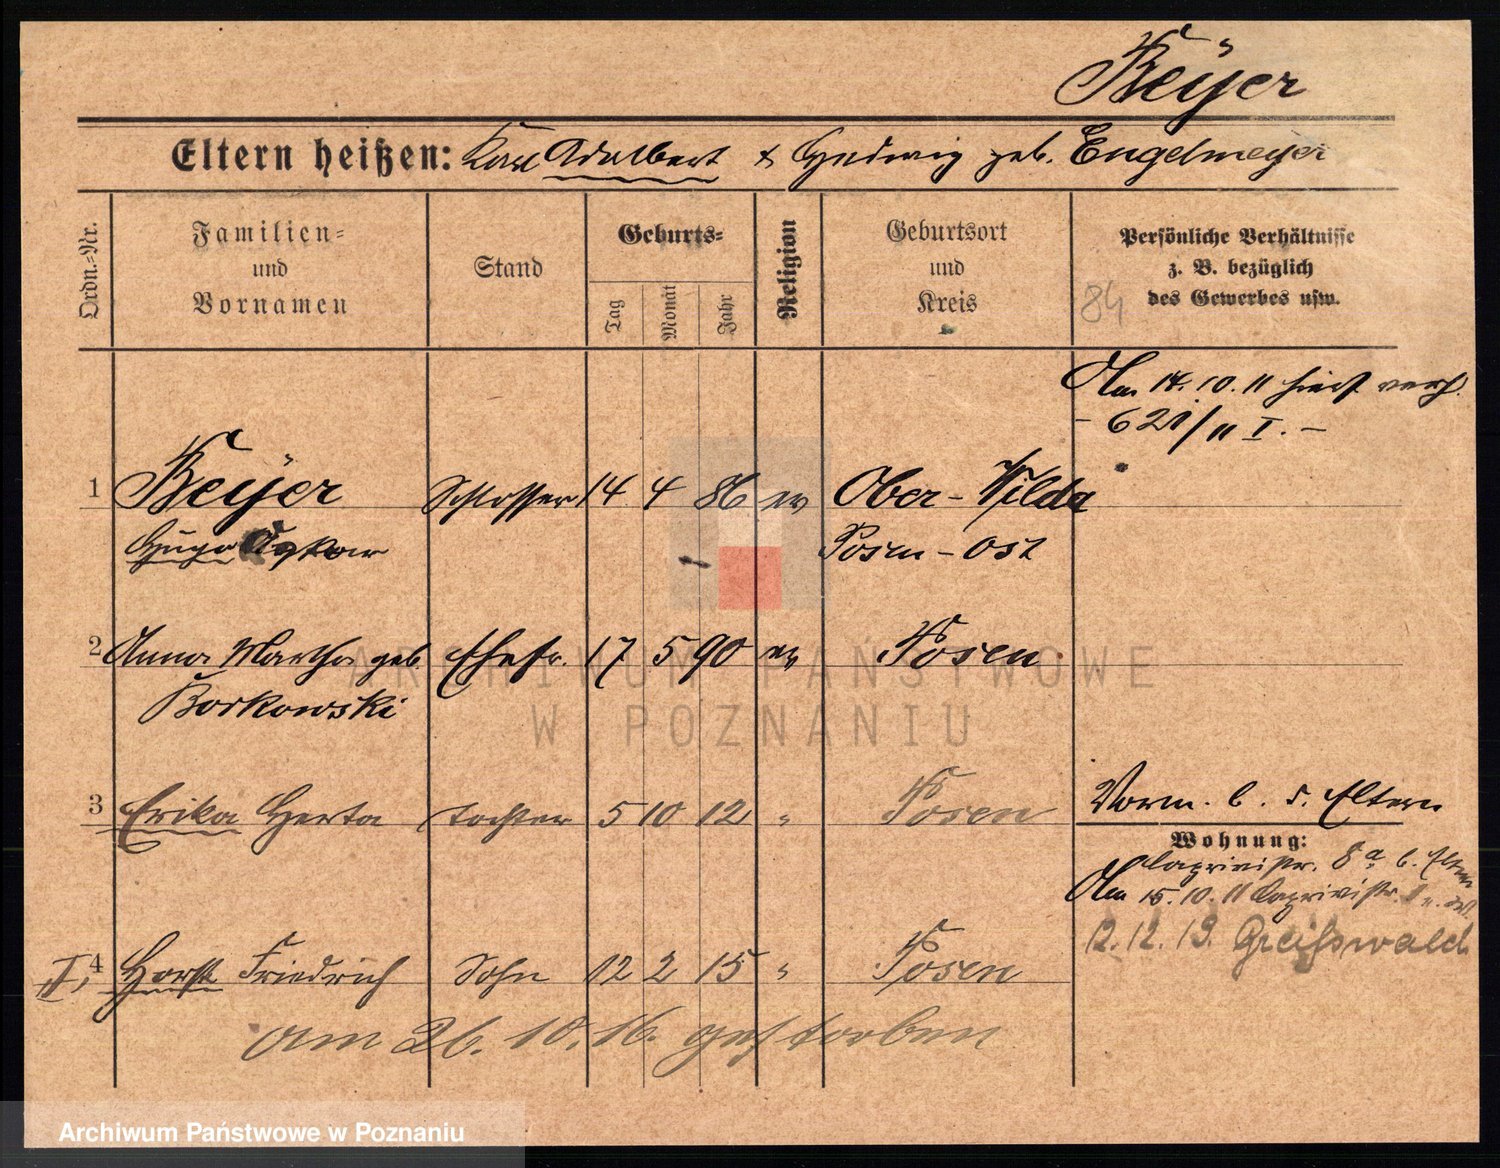 Beÿer
Eltern heißen: Karl Adalbert & Hedwig geb. Engelmeyer
Ordn.-Nr.
Familien- und Vornamen
Stand
Geburts-
Tag
Monat
Jahr
Religion
Geburtsort und Kreis
Persönliche Verhältnisse
z. B. bezüglich
des Gewerbes usw.
84
Am 14. 10. 11 hier verh.
- 621/11 I. -
1 Beÿer Schlosser 14 4 86 ev Ober-Wilda
Hugo Oskar Posen-Ost
2 Anna Martha geb. Ehefr. 17 5 90 ev Posen
Borkowski
3 Erika Herta Tochter 5 10 12 " Posen
Vorm. b. d. Eltern
Wohnung:
Caprivistr. 8a b. Eltern
Am 15. 10. 11 Caprivistr.
12. 12. 19. Greifswald
II, 4 Horst Friedrich Sohn 12 2 15 " Posen
am 26. 10. 16. gestorben
ARCHIWUM PAŃSTWOWE
W POZNANIU
Archiwum Państwowe w Poznaniu